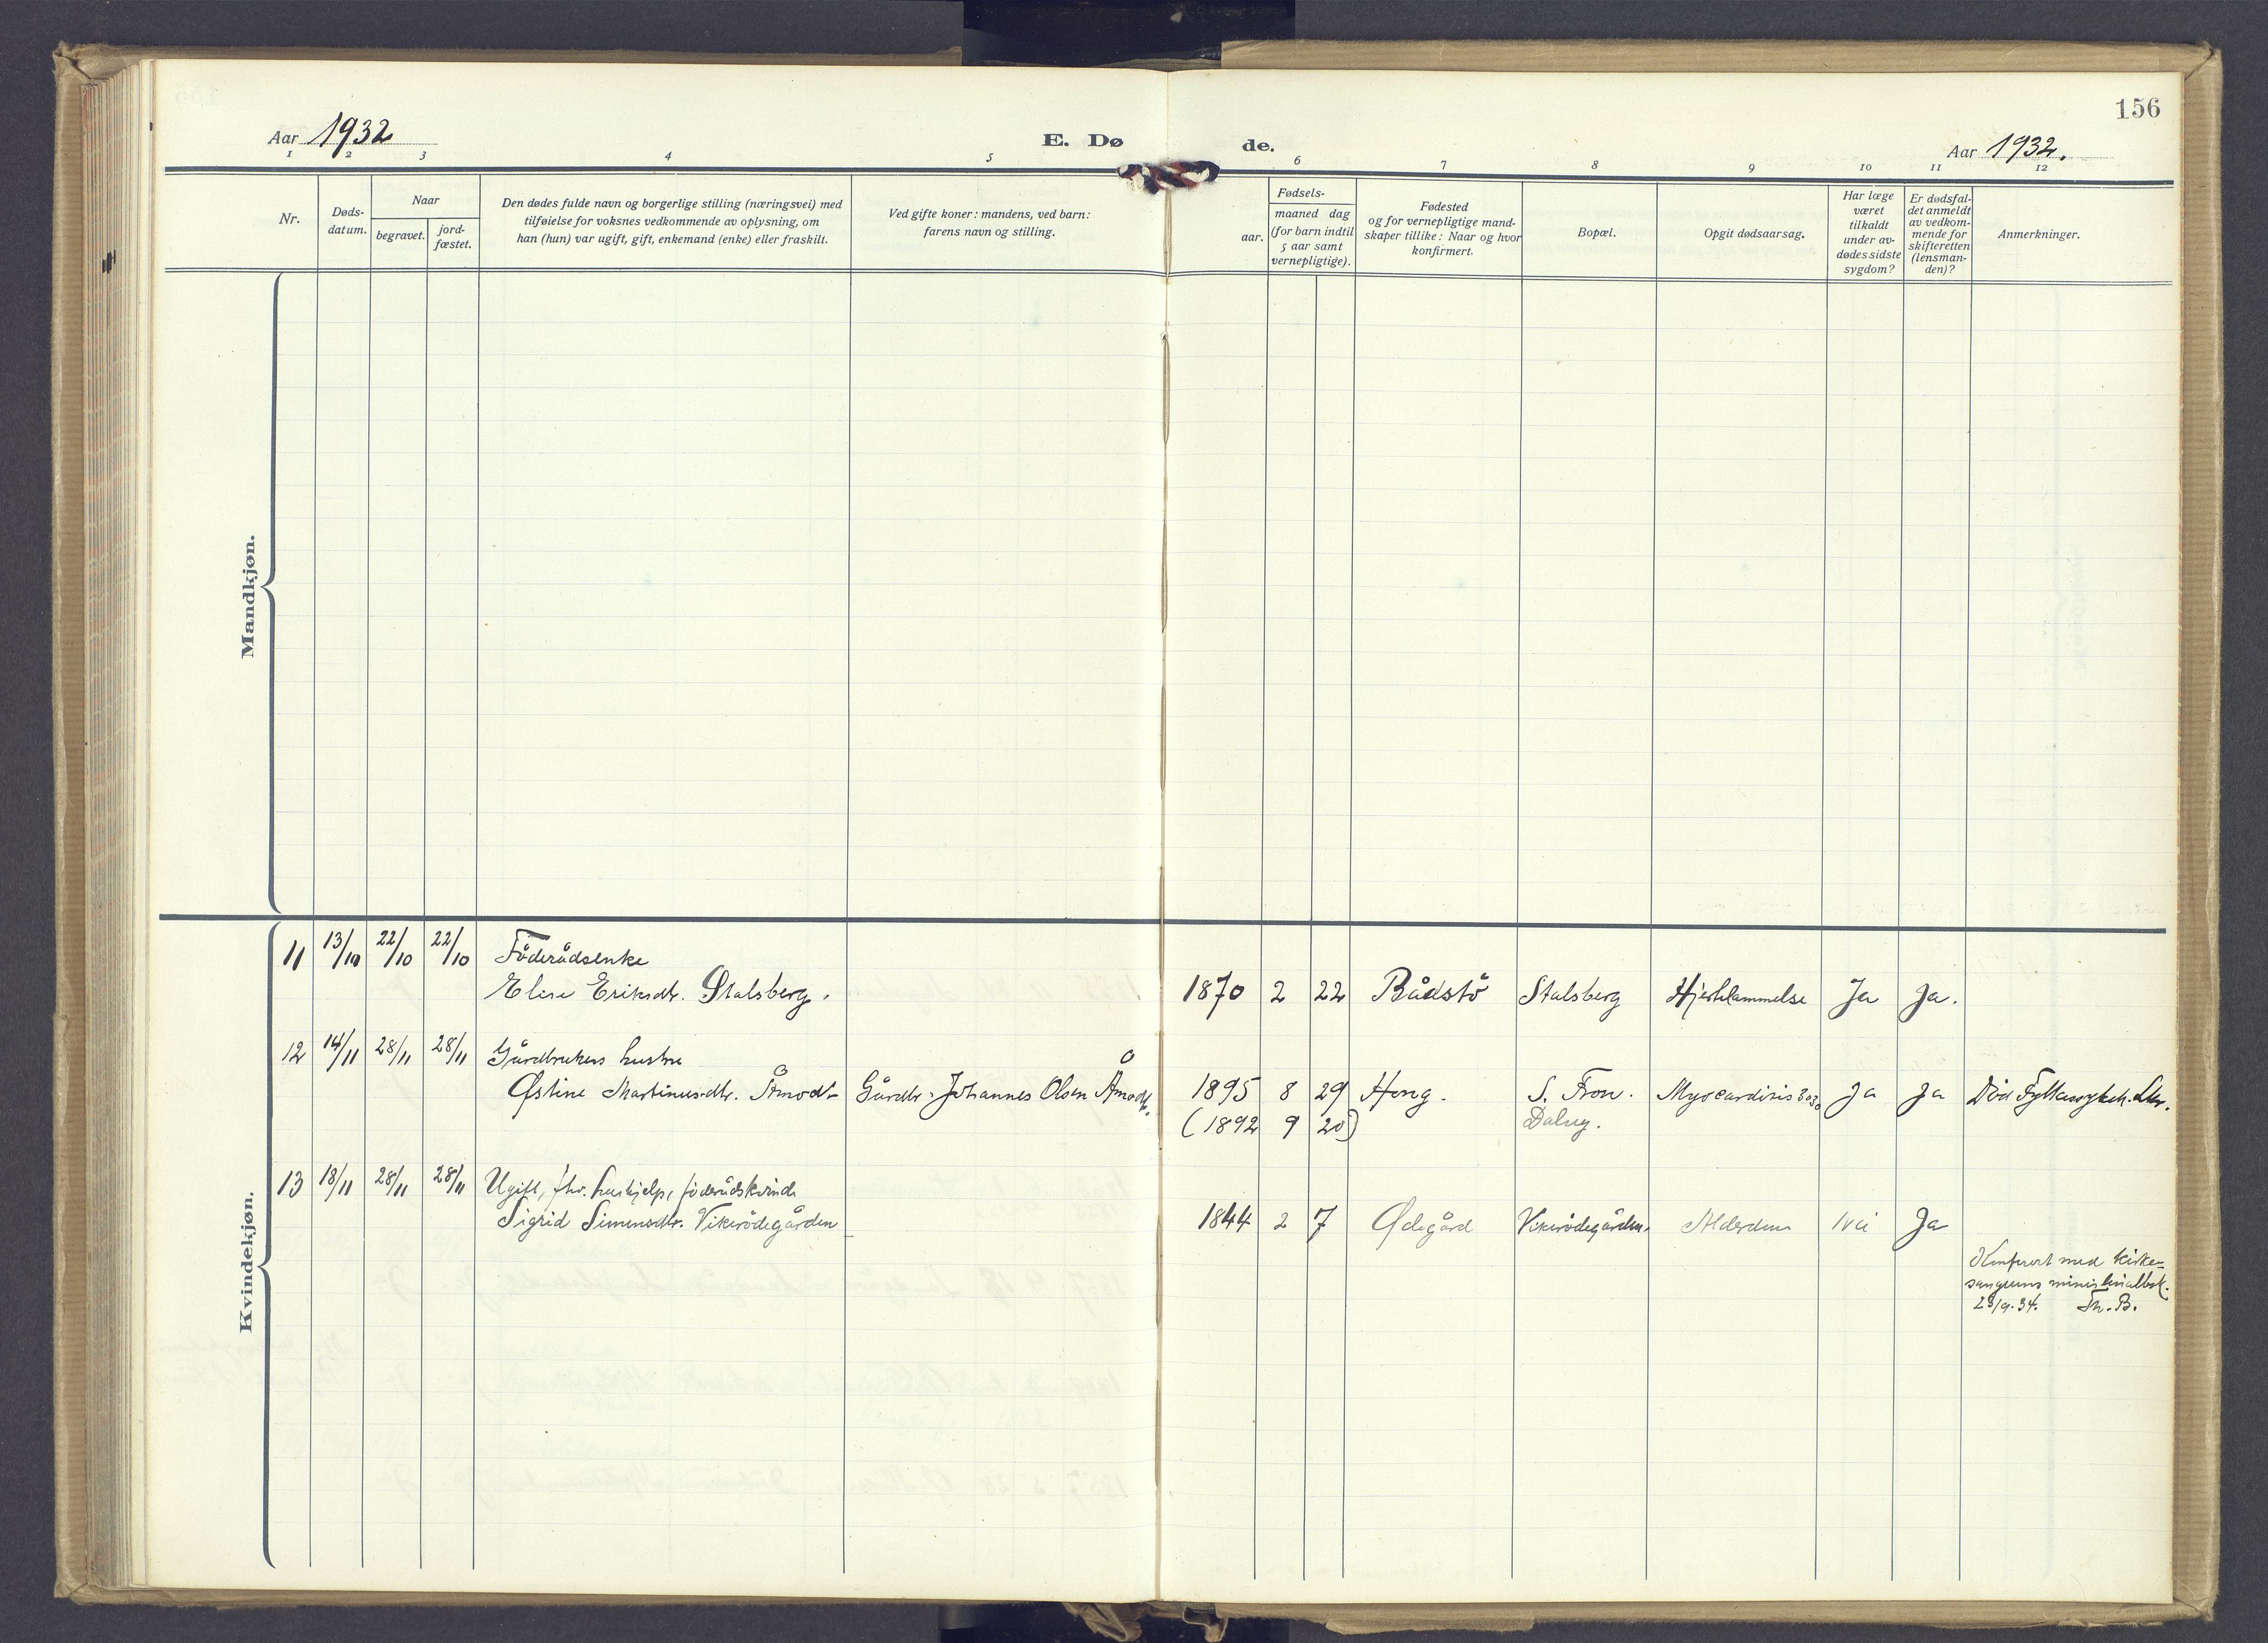 156
Aar 1932
E. Dø de.
Aar 1932.
1 2 3 4 5 6 7 8 9 10 11 12
Nr.
Døds-
datum.
Naar
begravet.
jord-
fæstet.
Den dødes fulde navn og borgerlige stilling (næringsvei) med
tilføielse for voksnes vedkommende av oplysning, om
han (hun) var ugift, gift, enkemand (enke) eller fraskilt.
Ved gifte koner: mandens, ved barn:
farens navn og stilling.
Fødsels-
aar.
maaned dag
(for barn indtil
5 aar samt
vernepligtige).
Fødested
og for vernepligtige mand-
skaper tillike: Naar og hvor
konfirmert.
Bopæl.
Opgit dødsaarsag.
Har læge
været
tilkaldt
under av-
dødes sidste
sygdom?
Er dødsfal-
det anmeldt
av vedkom-
mende for
skifteretten
(lensman-
den)?
Anmerkninger.
Mandkjøn.
Kvindekjøn.
11 13/10 22/10 22/10 Föderådsenke
Elise Eriksdtr. Stalsberg. 1870 2 22 Bådstö Stalsberg Hjertelammelse Ja Ja.
12 14/11 28/11 28/11 Gårdbrukers hustru
Østine Martinusdtr. Åmodt Gårdbr. Johannes Olsen Åmodt. 1895 8 29 Hong. S. Fron. Ja Ja Död Fylkessykeh. Lhr.
(1892 9 20) Dalseg.
13 18/11 28/11 28/11 Ugift, fhv. hushjelp, föderådskvinde
Sigrid Simensdtr. Vikerödegården 1844 2 7 Ødegård Vikerödegården. Alderdom Nei Ja
Konferert med kirke-
sangerens ministerialbok.
28/9.34. Th. B.